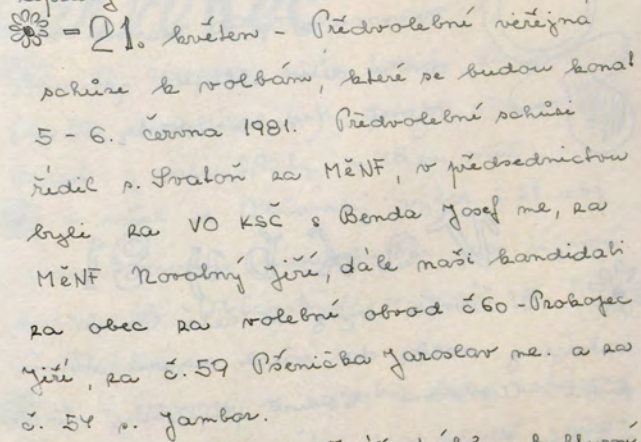 - 21. květen - Předvolební veřejná
schůze k volbám, které se budou konat
5 - 6. června 1981. Předvolební schůzi
řídil s. Svatoň za MěNF, v předsednictvu
byli za VO KSČ s Benda Josef ne, za
MěNF Novotný Jiří, dále naši kandidáti
za obec za volební obvod č 60 - Prokopec
Jiří, za č. 59 Pšenička Jaroslav ne. a za
č. 57 s. Jambor.